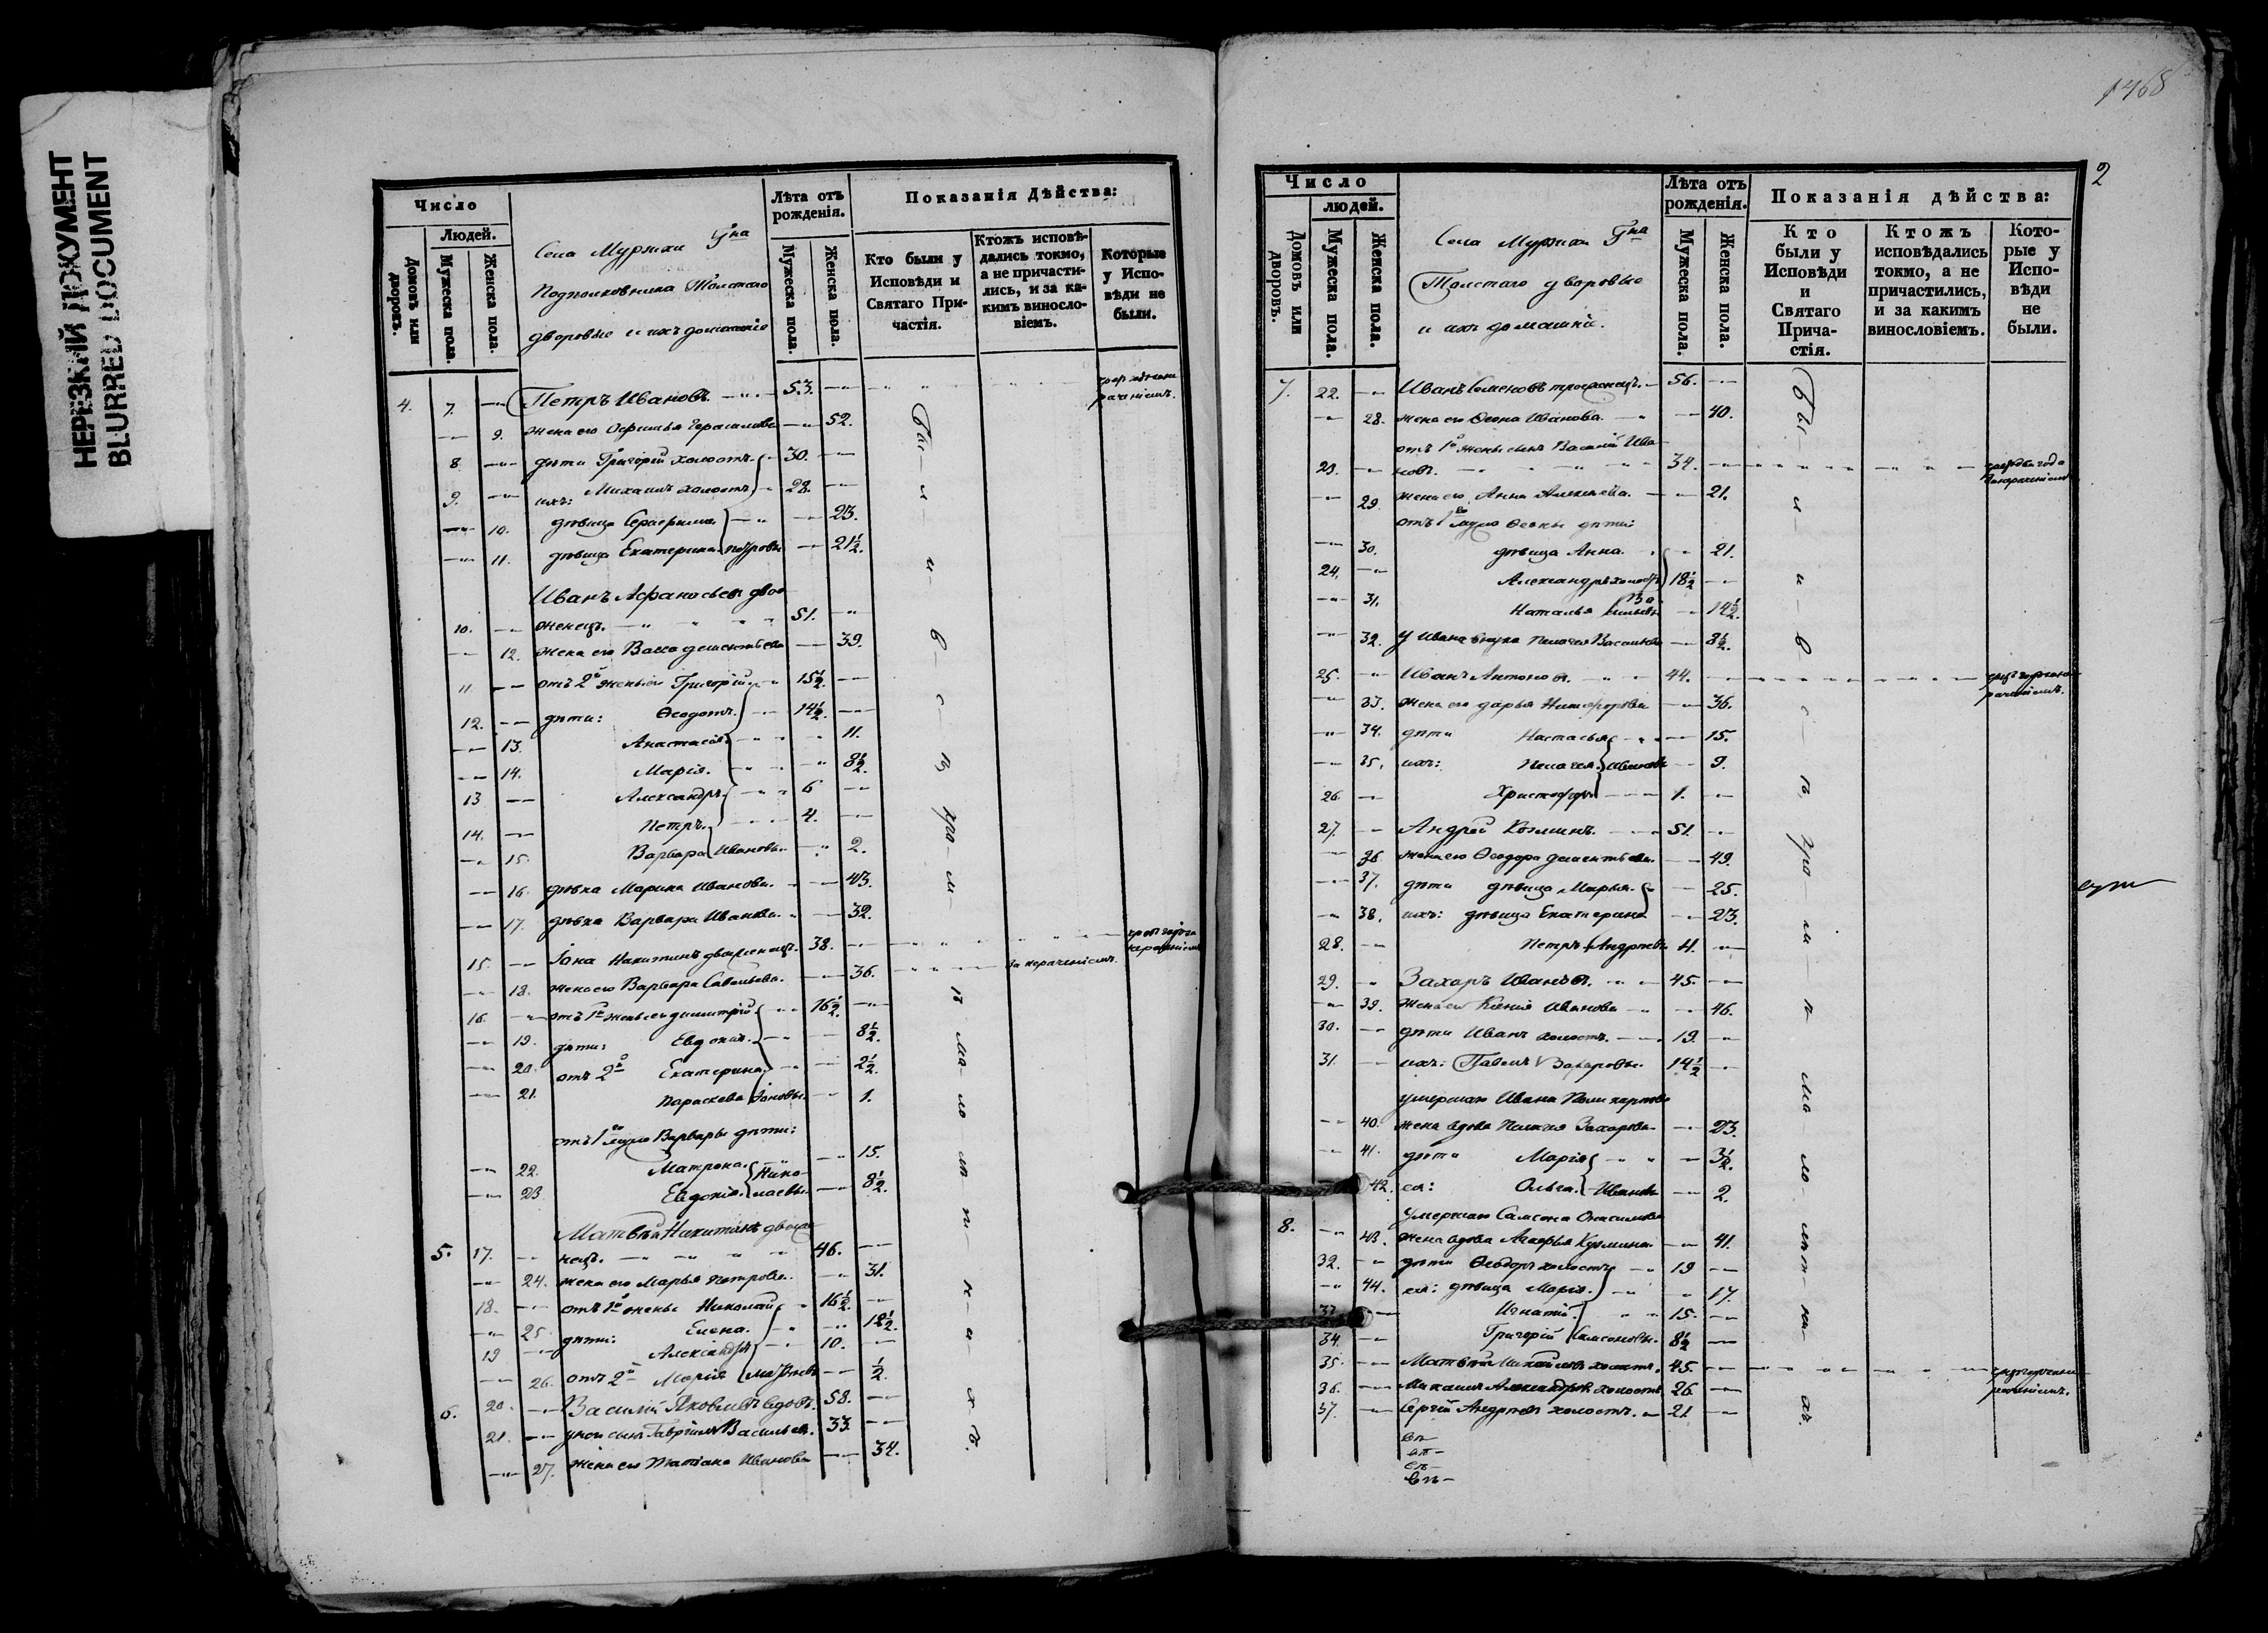 НЕРЕЗКИЙ ДОКУМЕНТ
BLURRED DOCUMENT
Число
Людей.
Домовъ или дворовъ.
Мужеска пола.
Женска пола.
Села Мурзихи Гна
Подполковника Толстаго
дворовые и ихъ домашніе
Лѣта отъ рожденія.
Мужеска пола.
Женска пола.
Показанія Дѣйства:
Кто были у Исповѣди и Святаго Причастія.
Ктожъ исповѣдались токмо, а не причастились, и за какимъ винословіемъ.
Которые у Исповѣди не были.
4. 7. Петръ Ивановъ 53.
9. жена его Герасимова 52.
8. дѣти Григорій холостъ 30.
9. ихъ: Михаилъ холостъ 28.
10. дѣвица Серафима 23.
11. дѣвица Екатерина Петровы 21½.
Иванъ Афанасьевъ двое
10. женецъ. 51.
12. жена его Васса Дементьева 39.
11. отъ 2й жены Григорій 15½.
12. дѣти: Ѳеодотъ. 14½.
13. Анастасія 11.
14. Марія. 8½.
13 Александръ 6
14. Петръ. 4.
15. Варвара Ивановы 2.
16. дѣвка Марина Иванова. 43.
17. дѣвка Варвара Иванова. 32.
15. Іона Никитинъ двоеженецъ. 38. за нерачениемъ
18. жена его Варвара Савельева. 36. за нерачениемъ.
16. отъ 1й жены Димитрій 16½.
19. дѣти: Евдокія. 8½.
20. отъ 2й Екатерина 2½.
21. Параскева Іоновы. 1.
отъ 1го мужа Варвары дѣти:
22. Матрона. 15.
23. Евдокія. Николаевы. 8½.
Матвѣй Никитинъ двоеже
5. 17. нецъ. 46.
24. жена его Марья Петрова. 31.
18. отъ 1й жены Николай 16½.
25. дѣти: Елена. 12½.
19 Александръ 10.
26. отъ 2й Марія Матвѣевы ½.
6. 20. Василій Яковлевъ вдовъ. 58.
21. у него сынъ Гавріилъ Васильевъ. 33.
27. жена его Татіана Иванова 34.
1468
2
Число
людей.
Домовъ или дворовъ.
Мужеска пола.
Женска пола.
Села Мурзихи Гна
Толстаго дворовые
и ихъ домашніе.
Лѣта отъ рожденія.
Мужеска пола.
Женска пола.
Показанія дѣйства:
Кто были у Исповѣди и Святаго Причастія.
Ктожъ исповѣдались токмо, а не причастились, и за какимъ винословіемъ.
Которые у Исповѣди не были.
7. 22. Иванъ Семеновъ троеженецъ. 56.
28. жена его Ѳеона Иванова. 40.
отъ 1й жены сынъ Василій Ива
23. новъ. 34.
29. жена его Анна Алексѣева. 21.
отъ 1го мужа Ѳеоны дѣти:
30. дѣвица Анна. 21.
24. Александръ холостъ 18½
31. Наталья Васильевы 14½.
32. У Ивана внука Пелагея Васильева 8½.
25. Иванъ Антоновъ. 44.
33. жена его Дарья Никифорова 36.
34. дѣти Настасья 15.
35. ихъ: Пелагея Ивановы 9.
26. Христофоръ 1.
27. Андрей Козминъ. 51.
36. жена его Ѳеодора Дементьева 49.
37. дѣти дѣвица Марья. 25.
38. ихъ: дѣвица Екатерина 23.
28. Петръ Андреевы 4.
29. Захаръ Ивановъ. 45.
39. жена его Ксенія Иванова 46.
30. дѣти Иванъ холостъ. 19.
31. ихъ: Павелъ Захаровы. 14½
умершаго Ивана Поликарпова
40. жена вдова Пелагея Захарова 23.
41. дѣти Марія 3½.
42. ея: Ольга. Ивановы 2.
умершаго Самсона Онисимова
8. 43. жена вдова Агафья Кузмина 41.
32. дѣти Ѳеодоръ холостъ 19
44. ея: дѣвица Марія. 17.
33. Игнатій 15.
34. Григорій Самсоновы. 8½
35. Матвѣй Михайловъ холостъ. 45.
36. Михаилъ Александровъ холостъ 26
37. Сергій Андреевъ холостъ. 21